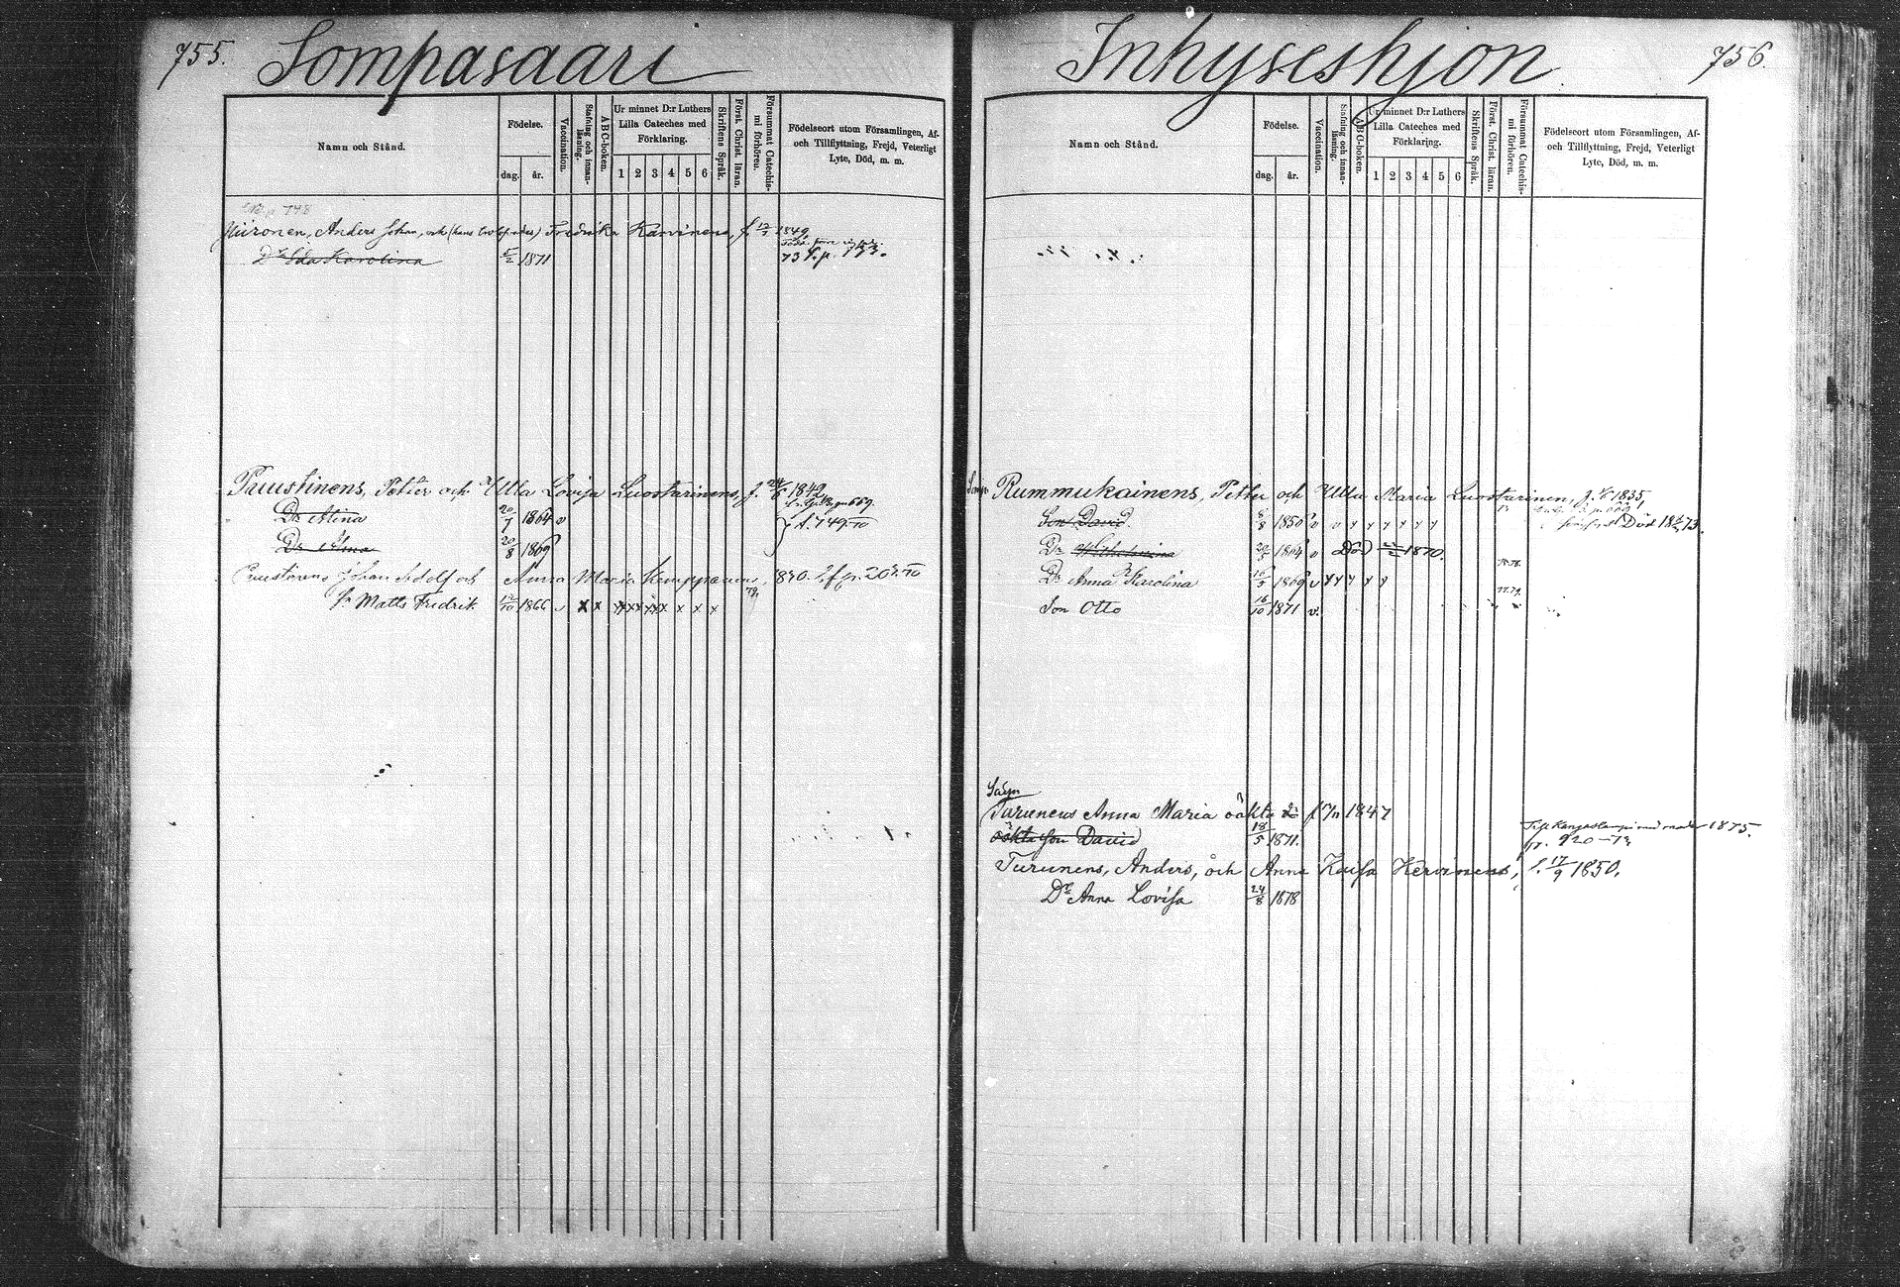 755. Sompasaari
Namn och Stånd.
Födelse.
dag. år.
Vaccination.
Stafning och innanläsning.
ABC-boken.
Ur minnet D:r Luthers
Lilla Cateches med
Förklaring.
1 2 3 4 5 6
Skriftens Språk.
Först. Christ. läran.
Försummat Catechismi förhören.
Födelseort utom Församlingen, Af-
och Tillflyttning, Frejd, Veterligt
Lyte, Död, m. m.
p 748
Anders Johan, och (hans Fredrika Karvinens, f. 1849,
Dr Ida Karolina 5/2 1871 73 f. p. 733.
Puustinens, Petter och Ulla Lovisa Luostarinens, f. 24/6 1842,
p 669.
Dr Alina 20/7 1864 v
f. 749 70
Dr 20/8 1869
Puustinens Johan Adolf och Anna Maria Kemppanens, 1840.
Matts Fredrik 12/10 1866 v x x x x x x x x x
Inhyseshjon 756.
Namn och Stånd.
Födelse.
dag. år.
Vaccination.
Stafning och innanläsning.
ABC-boken.
Ur minnet D:r Luthers
Lilla Cateches med
Förklaring.
1 2 3 4 5 6
Skriftens Språk.
Först. Christ. läran.
Försummat Catechismi förhören.
Födelseort utom Församlingen, Af-
och Tillflyttning, Frejd, Veterligt
Lyte, Död, m. m.
Rummukainens, Petter och Ulla Maria Luostarinen, f. 1835,
Son David 8/8 1850 v v y y y y y y Död 73.
Dr Wilhelmina 1864 v Död 1870.
Dr Anna Karolina 16/5 1869 v y y y y y
Son Otto 16/10 1871 v.
Turunens Anna Maria oäkta f 1847
oäkta son David 18/5 1871. Till Kangaslampi med moder 1875.
920 – 73
Turunens, Anders, och Anna Kaisa f. 17/9 1850.
Dr Anna Lovisa 24/8 1878